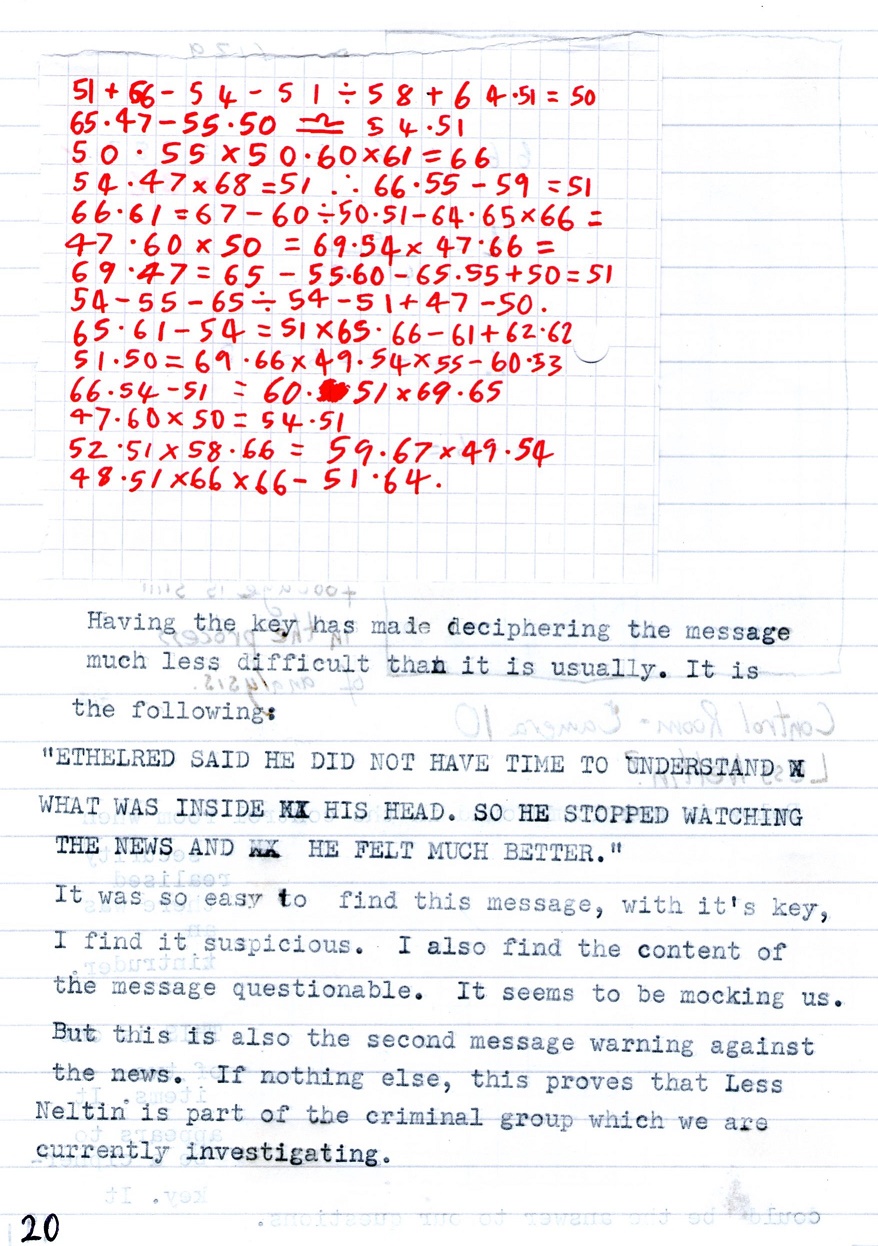 51 + 66 - 54 - 51 ÷ 58 + 64·51 = 50
65·47 - 55·50 ≏ 54·51
50·55 × 50·60 × 61 = 66
54·47 × 68 = 51 ∴ 66·55 - 59 = 51
66·61 = 67 - 60 ÷ 50·51 - 64·65 × 66 =
47·60 × 50 = 69·54 × 47·66 =
69·47 = 65 - 55·60 - 65·55 + 50 = 51
54 - 55 - 65 ÷ 54 - 51 + 47 - 50.
65·61 - 54 = 51 × 65·66 - 61 + 62·62
51·50 = 69·66 × 49·54 × 55 - 60·53
66·54 - 51 = 60·51 × 69·65
47·60 × 50 = 54·51
52·51 × 58·66 = 59·67 × 49·54
48·51 × 66 × 66 - 51·64.
Having the key has made deciphering the message
much less difficult than it is usually. It is
the following:
"ETHELRED SAID HE DID NOT HAVE TIME TO UNDERSTAND
WHAT WAS INSIDE HIS HEAD. SO HE STOPPED WATCHING
THE NEWS AND HE FELT MUCH BETTER."
It was so easy to find this message, with it's key,
I find it suspicious. I also find the content of
the message questionable. It seems to be mocking us.
But this is also the second message warning against
the news. If nothing else, this proves that Less
Neltin is part of the criminal group which we are
currently investigating.
20